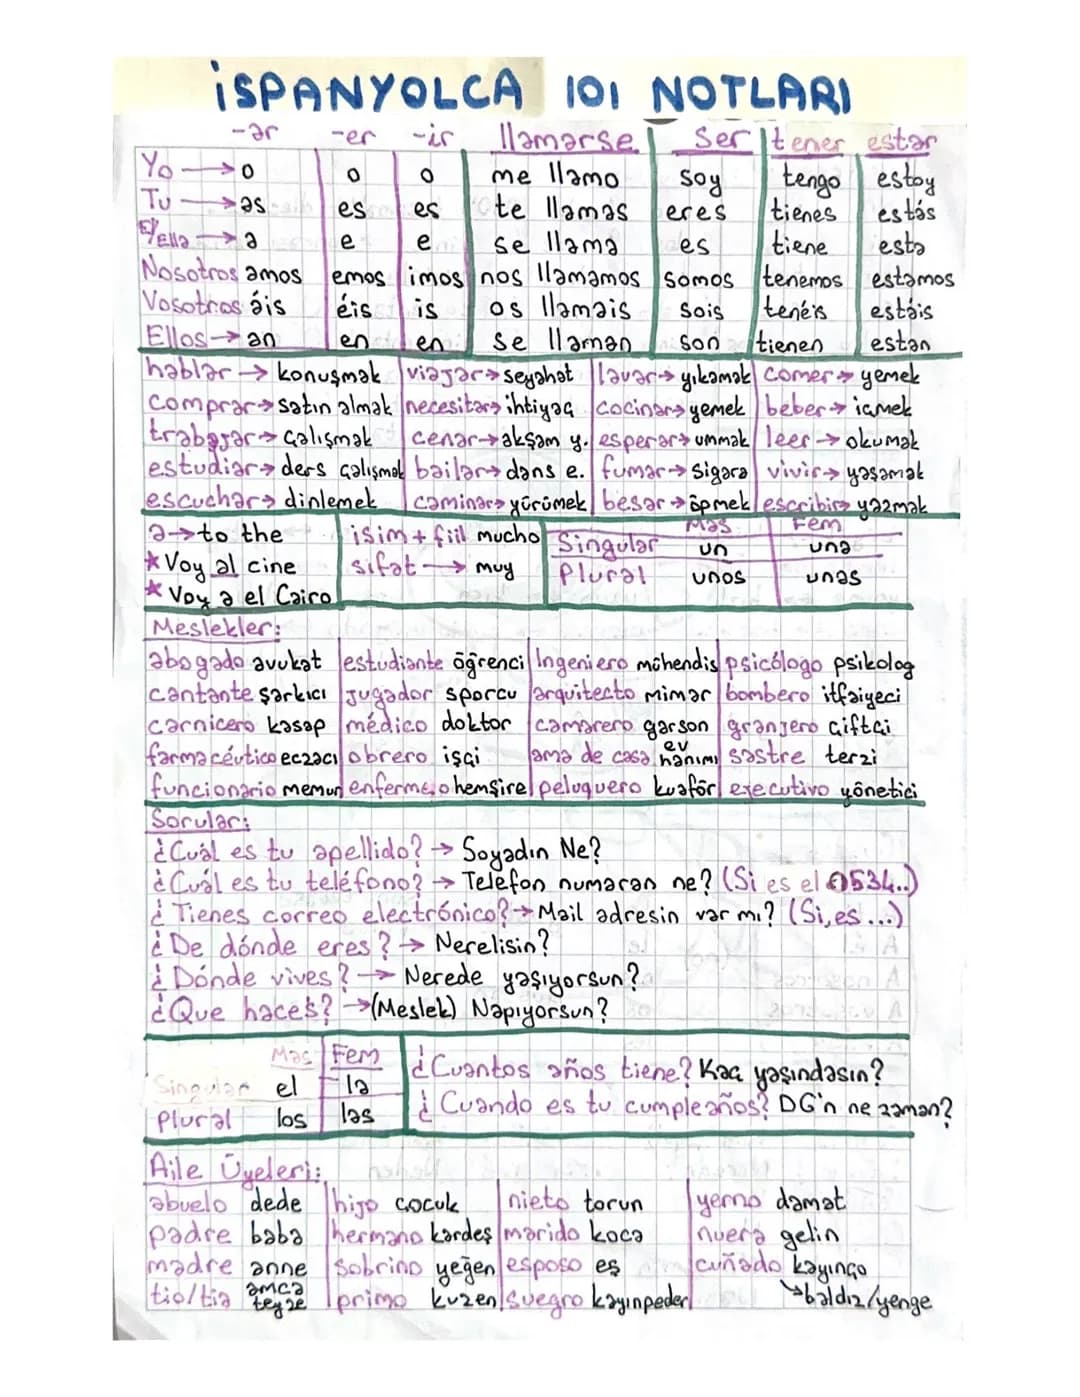 İSPANYOLCA 101 NOTLARI
-ar -er -ir llamarse ser tener estar
Yo → o o o me llamo soy tengo estoy
Tu → as es es te llamas eres tienes estás
El/Ella → a e e se llama es tiene esta
Nosotros amos emos imos nos llamamos somos tenemos estamos
Vosotros áis éis is os llamais sois tenéis estáis
Ellos → an en en se llaman son tienen estan
hablar → konuşmak viajar → seyahat lavar → yıkamak comer → yemek
comprar → satın almak necesitar → ihtiyaç cocinar → yemek beber → içmek
trabajar → çalışmak cenar → akşam y. esperar → ummak leer → okumak
estudiar → ders çalışmak bailar → dans e. fumar → sigara vivir → yaşamak
escuchar → dinlemek caminar → yürümek besar → öpmek escribir → yazmak
a → to the isim + fiil mucho Mas Fem
★ Voy al cine sıfat → muy Singular un una
★ Voy a el Cairo Plural unos unas
Meslekler:
abogado avukat estudiante öğrenci Ingeniero mühendis psicólogo psikolog
cantante şarkıcı jugador sporcu arquitecto mimar bombero itfaiyeci
carnicero kasap médico doktor camarero garson granjero çiftçi
farmacéutico eczacı obrero işçi ama de casa ev hanımı sastre terzi
funcionario memur enfermero hemşire peluquero kuaför ejecutivo yönetici
Sorular:
¿Cuál es tu apellido? → Soyadın Ne?
¿Cuál es tu teléfono? → Telefon numaran ne? (Si es el 0534..)
¿Tienes correo electrónico? → Mail adresin var mı? (Si, es ...)
¿De dónde eres? → Nerelisin?
¿Dónde vives? → Nerede yaşıyorsun?
¿Que haces? → (Meslek) Napıyorsun?
Mas Fem ¿Cuantos años tiene? Kaç yaşındasın?
Singular el la
Plural los las ¿Cuando es tu cumpleaños? DG'n ne zaman?
Aile Üyeleri:
abuelo dede hijo çocuk nieto torun yerno damat
padre baba hermano kardeş marido koca nuera gelin
madre anne sobrino yeğen esposo eş cuñado kayınço
tio/tia amca teyze primo kuzen suegro kayınpeder → baldız/yenge